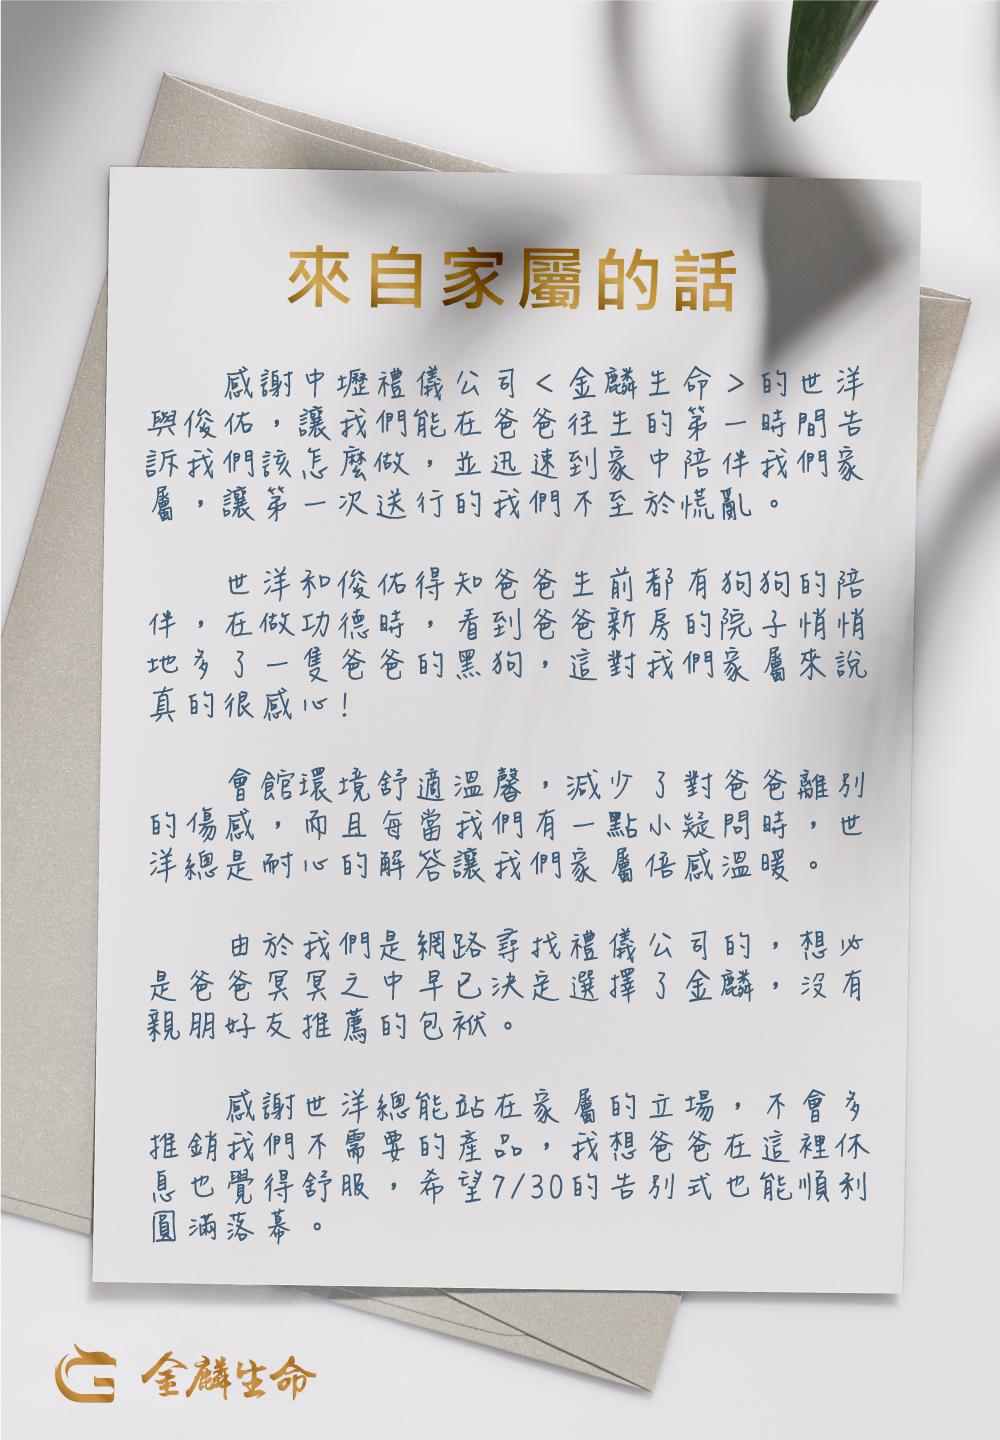 來自家屬的話
感謝中壢禮儀公司<金麟生命>的世洋
與俊佑，讓我們能在爸爸往生的第一時間告
訴我們該怎麼做，並迅速到家中陪伴我們家
屬，讓第一次送行的我們不至於慌亂。
世洋和俊佑得知爸爸生前都有狗狗的陪
伴，在做功德時，看到爸爸新房的院子悄悄
地多了一隻爸爸的黑狗，這對我們家屬來說
真的很感心!
會館環境舒適溫馨，減少了對爸爸離別
的傷感，而且每當我們有一點小疑問時，世
洋總是耐心的解答讓我們家屬倍感溫暖。
由於我們是網路尋找禮儀公司的，想必
是爸爸冥冥之中早已決定選擇了金麟，沒有
親朋好友推薦的包袱。
感謝世洋總能站在家屬的立場，不會多
推銷我們不需要的產品，我想爸爸在這裡休
息也覺得舒服，希望7/30的告別式也能順利
圓滿落幕。
金麟生命